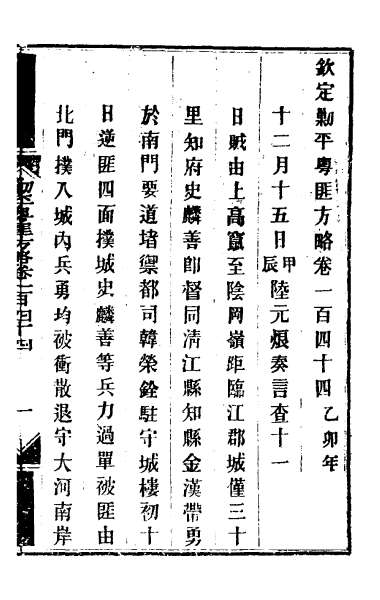 欽定勦平粵匪方略卷一百四十四乙卯年
十二月十五日甲辰陸元烺奏言查十一
日賊由上高竄至陰岡嶺距臨江郡城僅三十
里知府史麟善卽督同淸江縣知縣金漢帶勇
於南門要道堵禦都司韓榮銓駐守城樓初十
日逆匪四面撲城史麟善等兵力過單被匪由
北門撲入城內兵勇均被衝散退守大河南岸
一